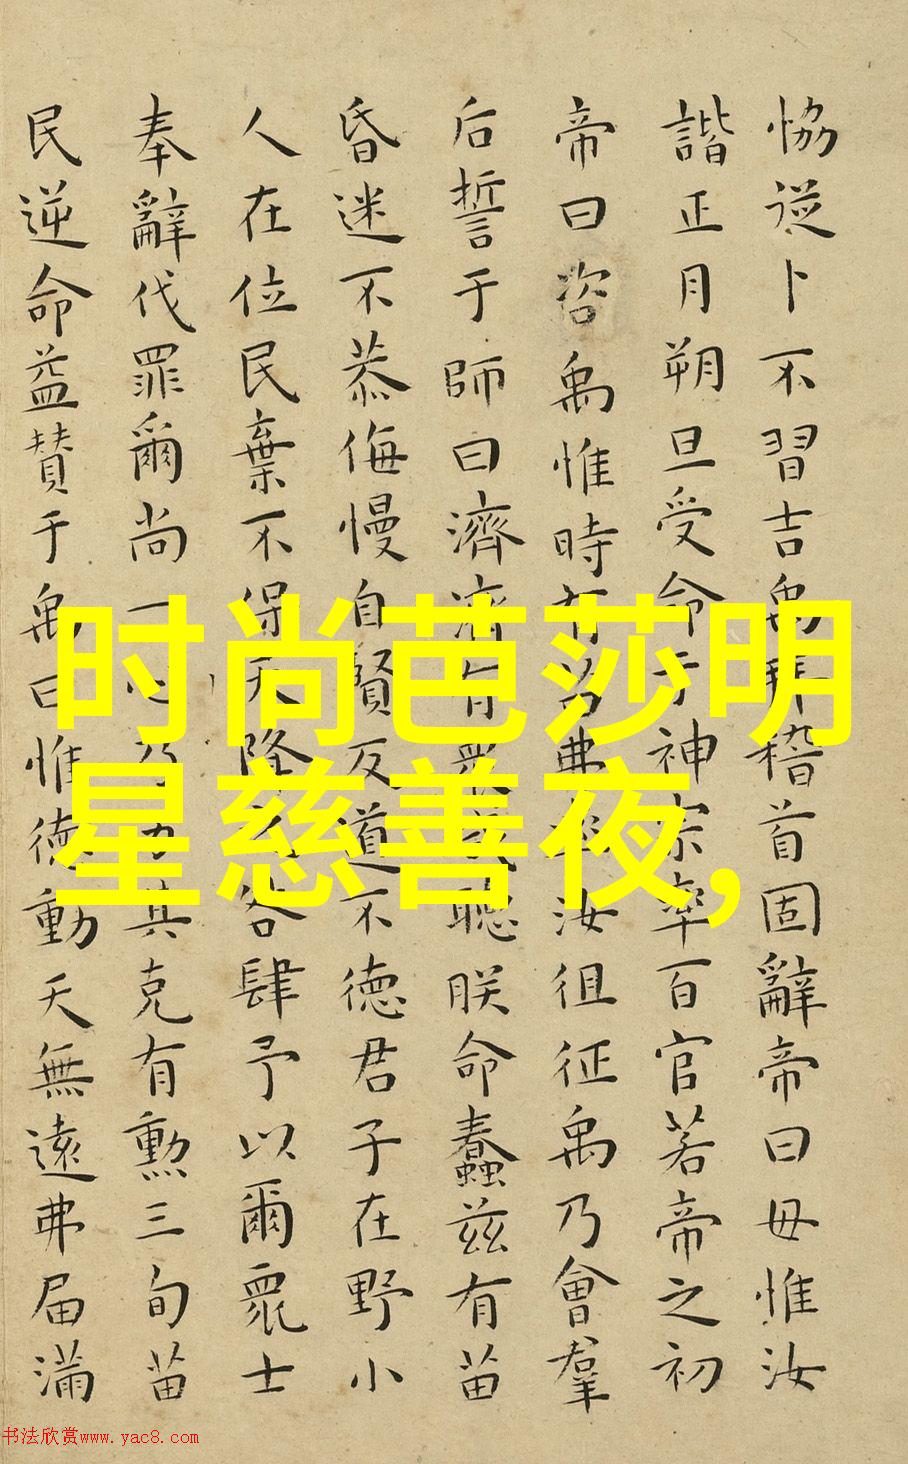 恊從卜不習吉禹拜稽首固辭帝曰毋惟汝
諧正月朔旦受命于神宗率百官若帝之初
帝曰咨禹惟時有苗弗率汝徂征禹乃會羣
后誓于師曰濟濟有衆咸聽朕命蠢兹有苗
昏迷不恭侮慢自賢反道不徳君子在野小
人在位民棄不保天降之咎肆予以爾衆士
奉辭伐罪爾尚一心乃力其克有勲三旬苗
民逆命益贊于禹曰惟徳動天無遠弗届滿
时尚芭莎明
星慈善夜,
书法欣赏www.yac8.com